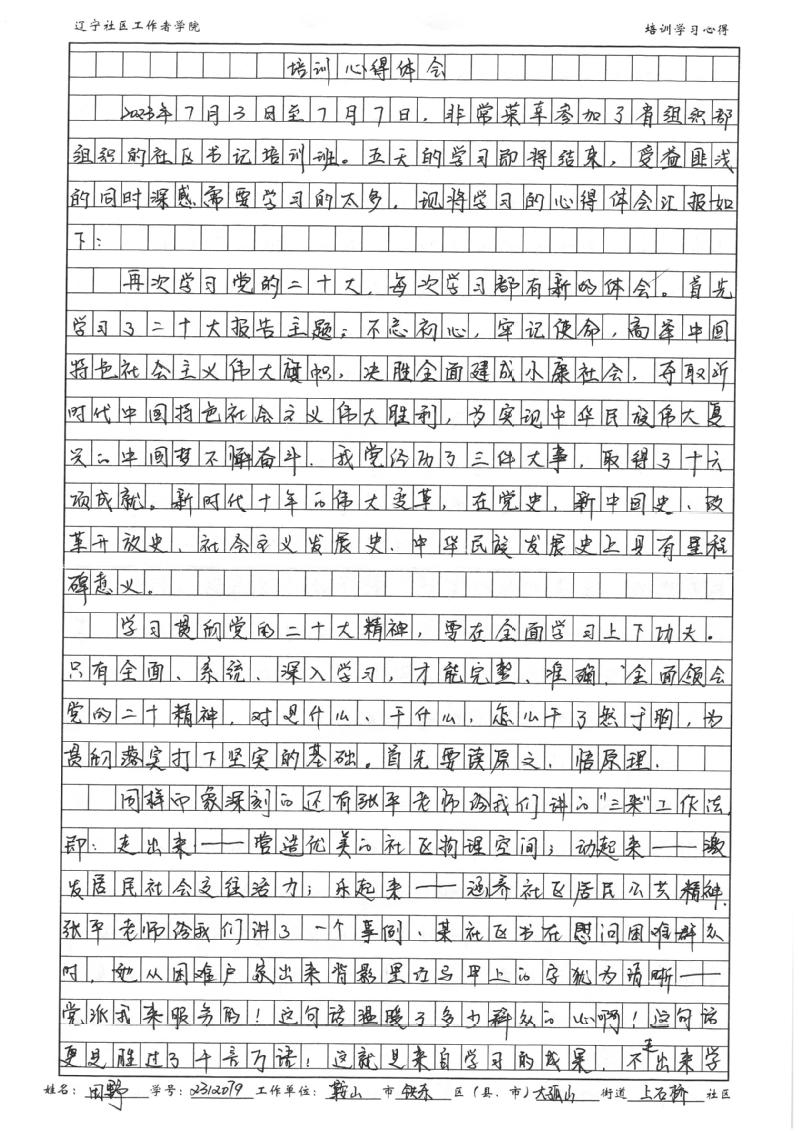 辽宁社区工作者学院 培训学习心得
培训心得体会
2023年7月3日至7月7日,非常荣幸参加了省组织部
组织的社区书记培训班。五天的学习即将结束,受益匪浅
的同时深感需要学习的太多,现将学习的心得体会汇报如
下:
再次学习党的二十大,每次学习都有新的体会。首先
学习了二十大报告主题:不忘初心,牢记使命,高举中国
特色社会主义伟大旗帜,决胜全面建成小康社会,夺取新
时代中国特色社会主义伟大胜利,为实现中华民族伟大复
兴的中国梦不懈奋斗.我党经历了三件大事,取得了十六
项成就。新时代十年的伟大变革,在党史、新中国史、改
革开放史、社会主义发展史、中华民族发展史上具有里程
碑意义。
学习贯彻党的二十大精神,要在全面学习上下功夫。
只有全面、系统、深入学习,才能完整、准确、全面领会
党的二十精神,对是什么、干什么,怎么干了然于胸,为
贯彻落实打下坚实的基础。首先要读原文、悟原理.
同样印象深刻的还有张平老师给我们讲的"三来"工作法,
即:走出来——营造优美的社区物理空间;动起来——激
发居民社会交往活力;乐起来——涵养社区居民公共精神.
张平老师给我们讲了一个事例、某社区书在慰问困难群众
时,她从困难户家出来背影里边马甲上的字犹为清晰——
党派我来服务的!这句话温暖了多少群众的心啊!这句话
更是胜过了千言万语!这就是来自学习的成果,不走出来学
姓名:田野 学号:2312079 工作单位:鞍山市铁东区(县、市)大孤山街道上石桥社区